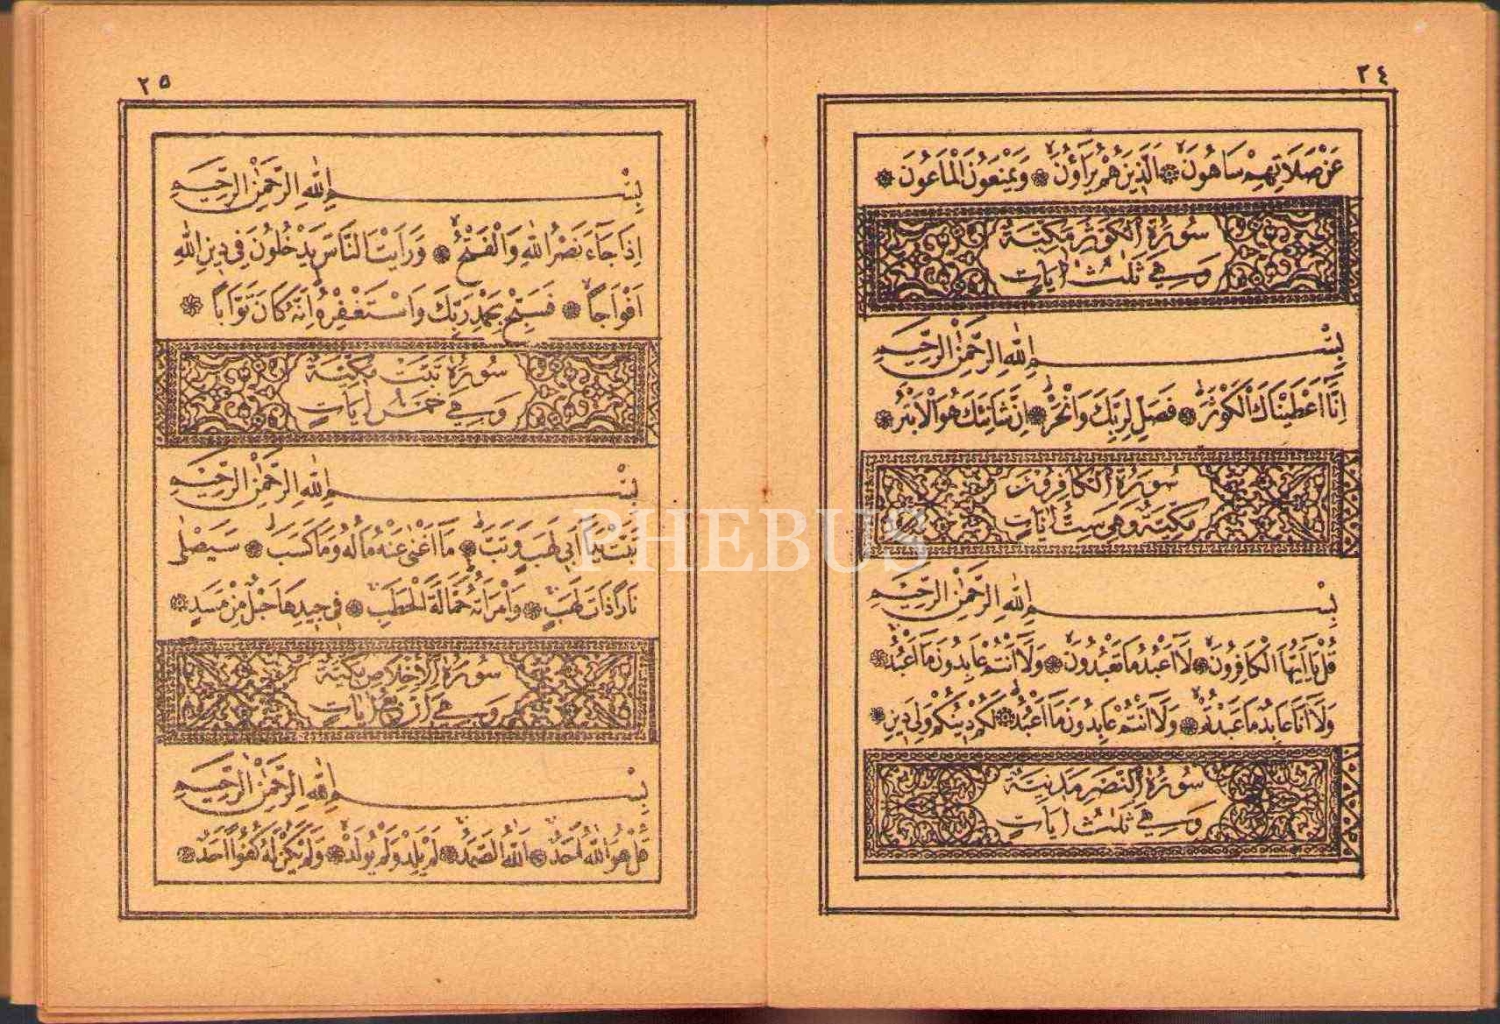 ٢٤
عَنْ صَلَاتِهِمْ سَاهُونَ ۞ اَلَّذِينَ هُمْ يُرَاؤُنَ ۞ وَيَمْنَعُونَ الْمَاعُونَ ۞
سُورَةُ الْكَوْثَرِ مَكِّيَّةٌ
وَهِيَ ثَلٰثُ اٰيَاتٍ
بِسْمِ اللهِ الرَّحْمٰنِ الرَّحِيمِ
اِنَّا اَعْطَيْنَاكَ الْكَوْثَرَ ۞ فَصَلِّ لِرَبِّكَ وَانْحَرْ ۞ اِنَّ شَانِئَكَ هُوَ الْاَبْتَرُ ۞
سُورَةُ الْكَافِرُونَ
مَكِّيَّةٌ وَهِيَ سِتُّ اٰيَاتٍ
بِسْمِ اللهِ الرَّحْمٰنِ الرَّحِيمِ
قُلْ يَا اَيُّهَا الْكَافِرُونَ ۞ لَا اَعْبُدُ مَا تَعْبُدُونَ ۞ وَلَا اَنْتُمْ عَابِدُونَ مَا اَعْبُدُ ۞
وَلَا اَنَا عَابِدٌ مَا عَبَدْتُمْ ۞ وَلَا اَنْتُمْ عَابِدُونَ مَا اَعْبُدُ ۞ لَكُمْ دِينُكُمْ وَلِيَ دِينِ ۞
سُورَةُ النَّصْرِ مَدَنِيَّةٌ
وَهِيَ ثَلٰثُ اٰيَاتٍ
٢٥
بِسْمِ اللهِ الرَّحْمٰنِ الرَّحِيمِ
اِذَا جَاءَ نَصْرُ اللهِ وَالْفَتْحُ ۞ وَرَاَيْتَ النَّاسَ يَدْخُلُونَ فِي دِينِ اللهِ
اَفْوَاجاً ۞ فَسَبِّحْ بِحَمْدِ رَبِّكَ وَاسْتَغْفِرْهُ اِنَّهُ كَانَ تَوَّاباً ۞
سُورَةُ تَبَّتْ مَكِّيَّةٌ
وَهِيَ خَمْسُ اٰيَاتٍ
بِسْمِ اللهِ الرَّحْمٰنِ الرَّحِيمِ
تَبَّتْ يَدَا اَبِي لَهَبٍ وَتَبَّ ۞ مَا اَغْنٰى عَنْهُ مَالُهُ وَمَا كَسَبَ ۞ سَيَصْلٰى
نَاراً ذَاتَ لَهَبٍ ۞ وَامْرَاَتُهُ حَمَّالَةَ الْحَطَبِ ۞ فِي جِيدِهَا حَبْلٌ مِنْ مَسَدٍ ۞
سُورَةُ الْاِخْلَاصِ مَكِّيَّةٌ
وَهِيَ اَرْبَعُ اٰيَاتٍ
بِسْمِ اللهِ الرَّحْمٰنِ الرَّحِيمِ
قُلْ هُوَ اللهُ اَحَدٌ ۞ اَللهُ الصَّمَدُ ۞ لَمْ يَلِدْ وَلَمْ يُولَدْ ۞ وَلَمْ يَكُنْ لَهُ كُفُواً اَحَدٌ ۞
PHEBUS